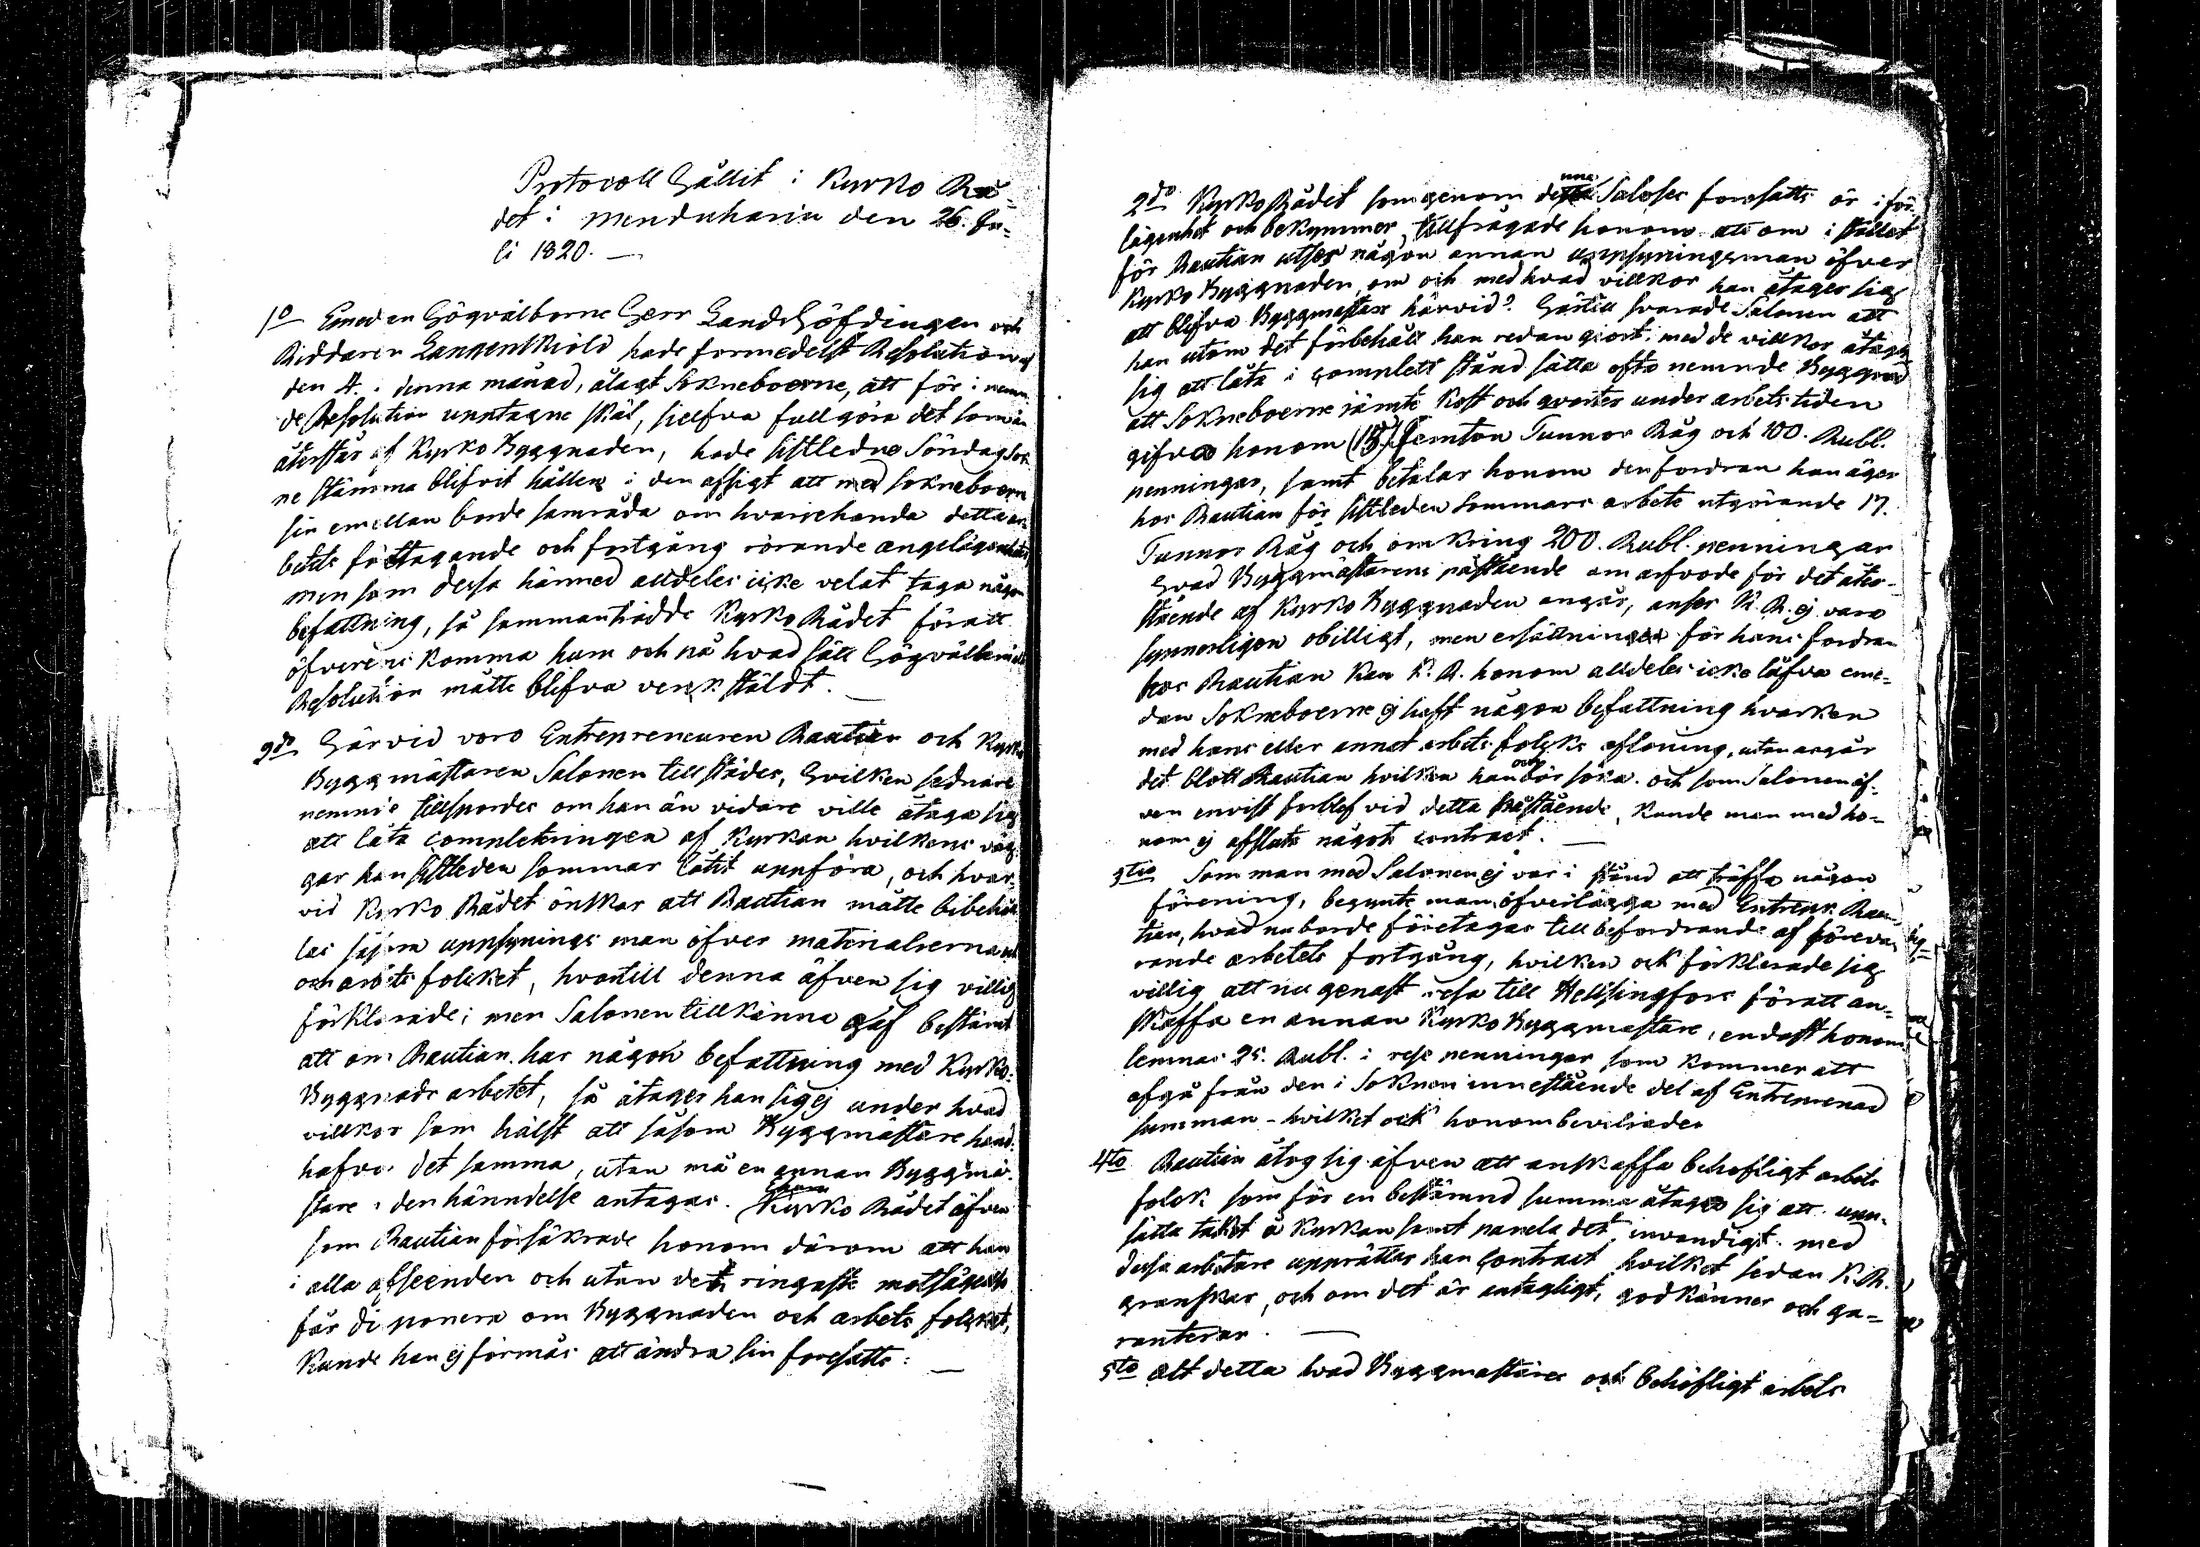 Protocoll Hållit i Kyrko Rå-
det i Menduharju den 26. Ju=
li 1820. —
1o Emedan Högvälborne Herr Landshöfdingen och
Riddaren Langenskiöld hade formedelst Resolution af
den 4. i denna månad, ålagt Sokneboerne, att för i nemn
de Resolution upptagne skäl, sielfva fullgöra det som än
återstår af Kyrko Byggnaden, hade sistledne Söndag Sok
ne stämma blifvit hållen i den afsigt att med Sokneboern
sin emellan borde samråda om hvarjehanda detta ar
betets företagande och fortgång rörande angelägenheter
men som dessa härmed alldeles icke velat taga någon
befattning, så sammanträdde Kyrko Rådet föratt
öfverens komma hum och på hvad sätt Högvälbemälte
Resolution måtte blifva verkstäldt. —
2do Härvid voro Entrepreneuren Rautian och Kyrko
Byggmästaren Salonen tillstädes, Hvilken sednare
nemnde tillspordes om han än vidare ville åtaga sig
att låta completeringen af Kyrkan hvilkens väg
gar han sistleden sommar låtit uppföra, och hvar
vid Kyrko Rådet önskar att Rautian måtte bibehål
las såsom uppsynings man öfver materialierna
och arbets folcket, hvartill denna äfven sig villig
förklarade; men Salonen tillkänna gaf bestämt
att om Rautian har någon befattning med Kyrko
Byggnads arbetet, så åtager han sig ej under hvad
villkor som hälst att såsom Byggmästare hand
hafva det samma, utan må en annan Byggmä-
stare i den händelse antagas. Kyrko Rådet äfven
som Rautian försäkrade honom därom att han
i alla afseenden och utan det ringaste motsägelse
får disponera om Byggnaden och arbets folcket,
Kunde han ej förmås att ändra sin foresatts. —
2do Kyrko Rådet som genom denna Salones foresatts är i för
lägenhet och bekymmer, tillfrågade honom att om i stället
för Rautian utses någon annan uppsyningsman öfver
Kyrko Byggnaden, om och med hvad villkor han åtager sig
att blifva Byggmästare härvid? Härtill svarade Salonen att
han utom det förbehåll han redan giort, med de villkor åtager
sig att låta i complett stånd sätta ofta nemnde Byggnad
att Sokneboerne jämte Kost och qvarter under arbets tiden
gifva honom (15) femton Tunnor Råg och 100. Rubl.
penningar, samt betalar honom den fordran han äger
hos Rautian för sistleden Sommars arbete utgörande 17.
Tunnor Råg och omkring 200. Rubl. penningar
Hvad Byggmästarens påstående om arfvode för det åter-
stående af Kyrko Byggnaden angår, anser K. R. ej vara
synnerligen obilligt, men ersättningen för hans fordran
hos Rautian kan K. R. honom alldeles icke låfva eme=
dan Sokneboerne ej haft någon befattning hvarken
med hans eller annat arbets folcks aflöning, utan angår
det blott Rautian hvilken han och bör söka. och som Salonen äf-
ven envist forblef vid detta påstående, kunde man med ho=
nom ej afsluta något contract. —
3tio Som man med Salonen ej var i stånd att träffa någon
förening, begynte man öfverlägga med Entrepr. Rau
tian, hvad nu borde företagas till befordrande af föreva
rande arbetets fortgång, hvilken ock förklarade sig
villig att nu genast resa till Helsingfors föratt an=
skaffa en annan Kyrko Byggmästare, endast honom
lemnas 25. Rubl. i rese penningar som kommer att
afgå från den i Soknen innestående del af Entreprenad
summan - hvilket ock honom beviliades
4to Rautian åtog sig äfven att anskaffa behöfligt arbets
folck som för en bestämnd summa åtager sig att upp-
sätta taket å Kyrkan samt panela det invändigt. med
dessa arbetare upprättar han Contract hvilket sedan K.R.
granskar, och om det är antagligt, godkänner och ga=
ranterar. —
5to Alt detta hvad Byggmästare och behöfligt arbets